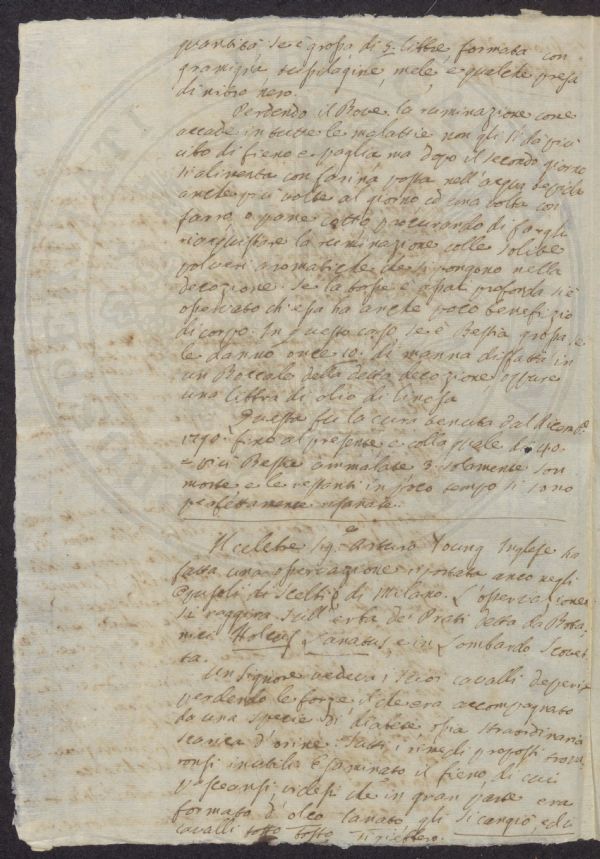 quantità se è grossa di 5 libbre, formata con
gramigna, tussilagine, mele, e qualche presa
di nitro nero.
Perdendo il Bove la ruminazione come
accade in tutte le malattie non gli si dà più
cibo di fieno e paglia ma dopo il secondo giorno
si alimenta con farina posta nell'acqua tepida
anche più volte al giorno ed una volta con
farro, o pane cotto procurando di fargli
riacquistare la ruminazione colle solite
polveri aromatiche che si pongono nella
decozione. Se la tosse è assai profonda si è
osservato ch'essa ha anche poco benefizio
di corpo. In questo caso se è Bestia grossa, se
le danno once 10. di manna disfatta in
un Boccale della detta decozione oppure
una libbra di olio di linosa
Questa fu la cura tenuta dal dicemb.e
1790. fino al presente e colla quale di 40
più Bestie ammalate 3. solamente son
morte e le restanti in poco tempo si sono
perfettamente risanate.
Il celebre Sig.e Arturo Young Inglese ha
fatta una osservazione riportata anco negli
Opuscoli di Scelti di Milano. L'osservazione
si raggira sull'erba de' Prati detta da Bota-
nici Holcus Lanatus, e in Lombardo Scovet-
ta.
Un signore vedeva i suoi cavalli deperir
perdendo le forze il che era accompagnato
da una specie di diabete ossia straordinaria
scarica d'orine. Tutti i rimedi proposti trova-
ronsi inutili. Esaminato il fieno, di cui
pasceansi, videsi che in gran parte era
formato d'olco lanato gli si cangiò, ed i
cavalli tosto tosto si riebbero.